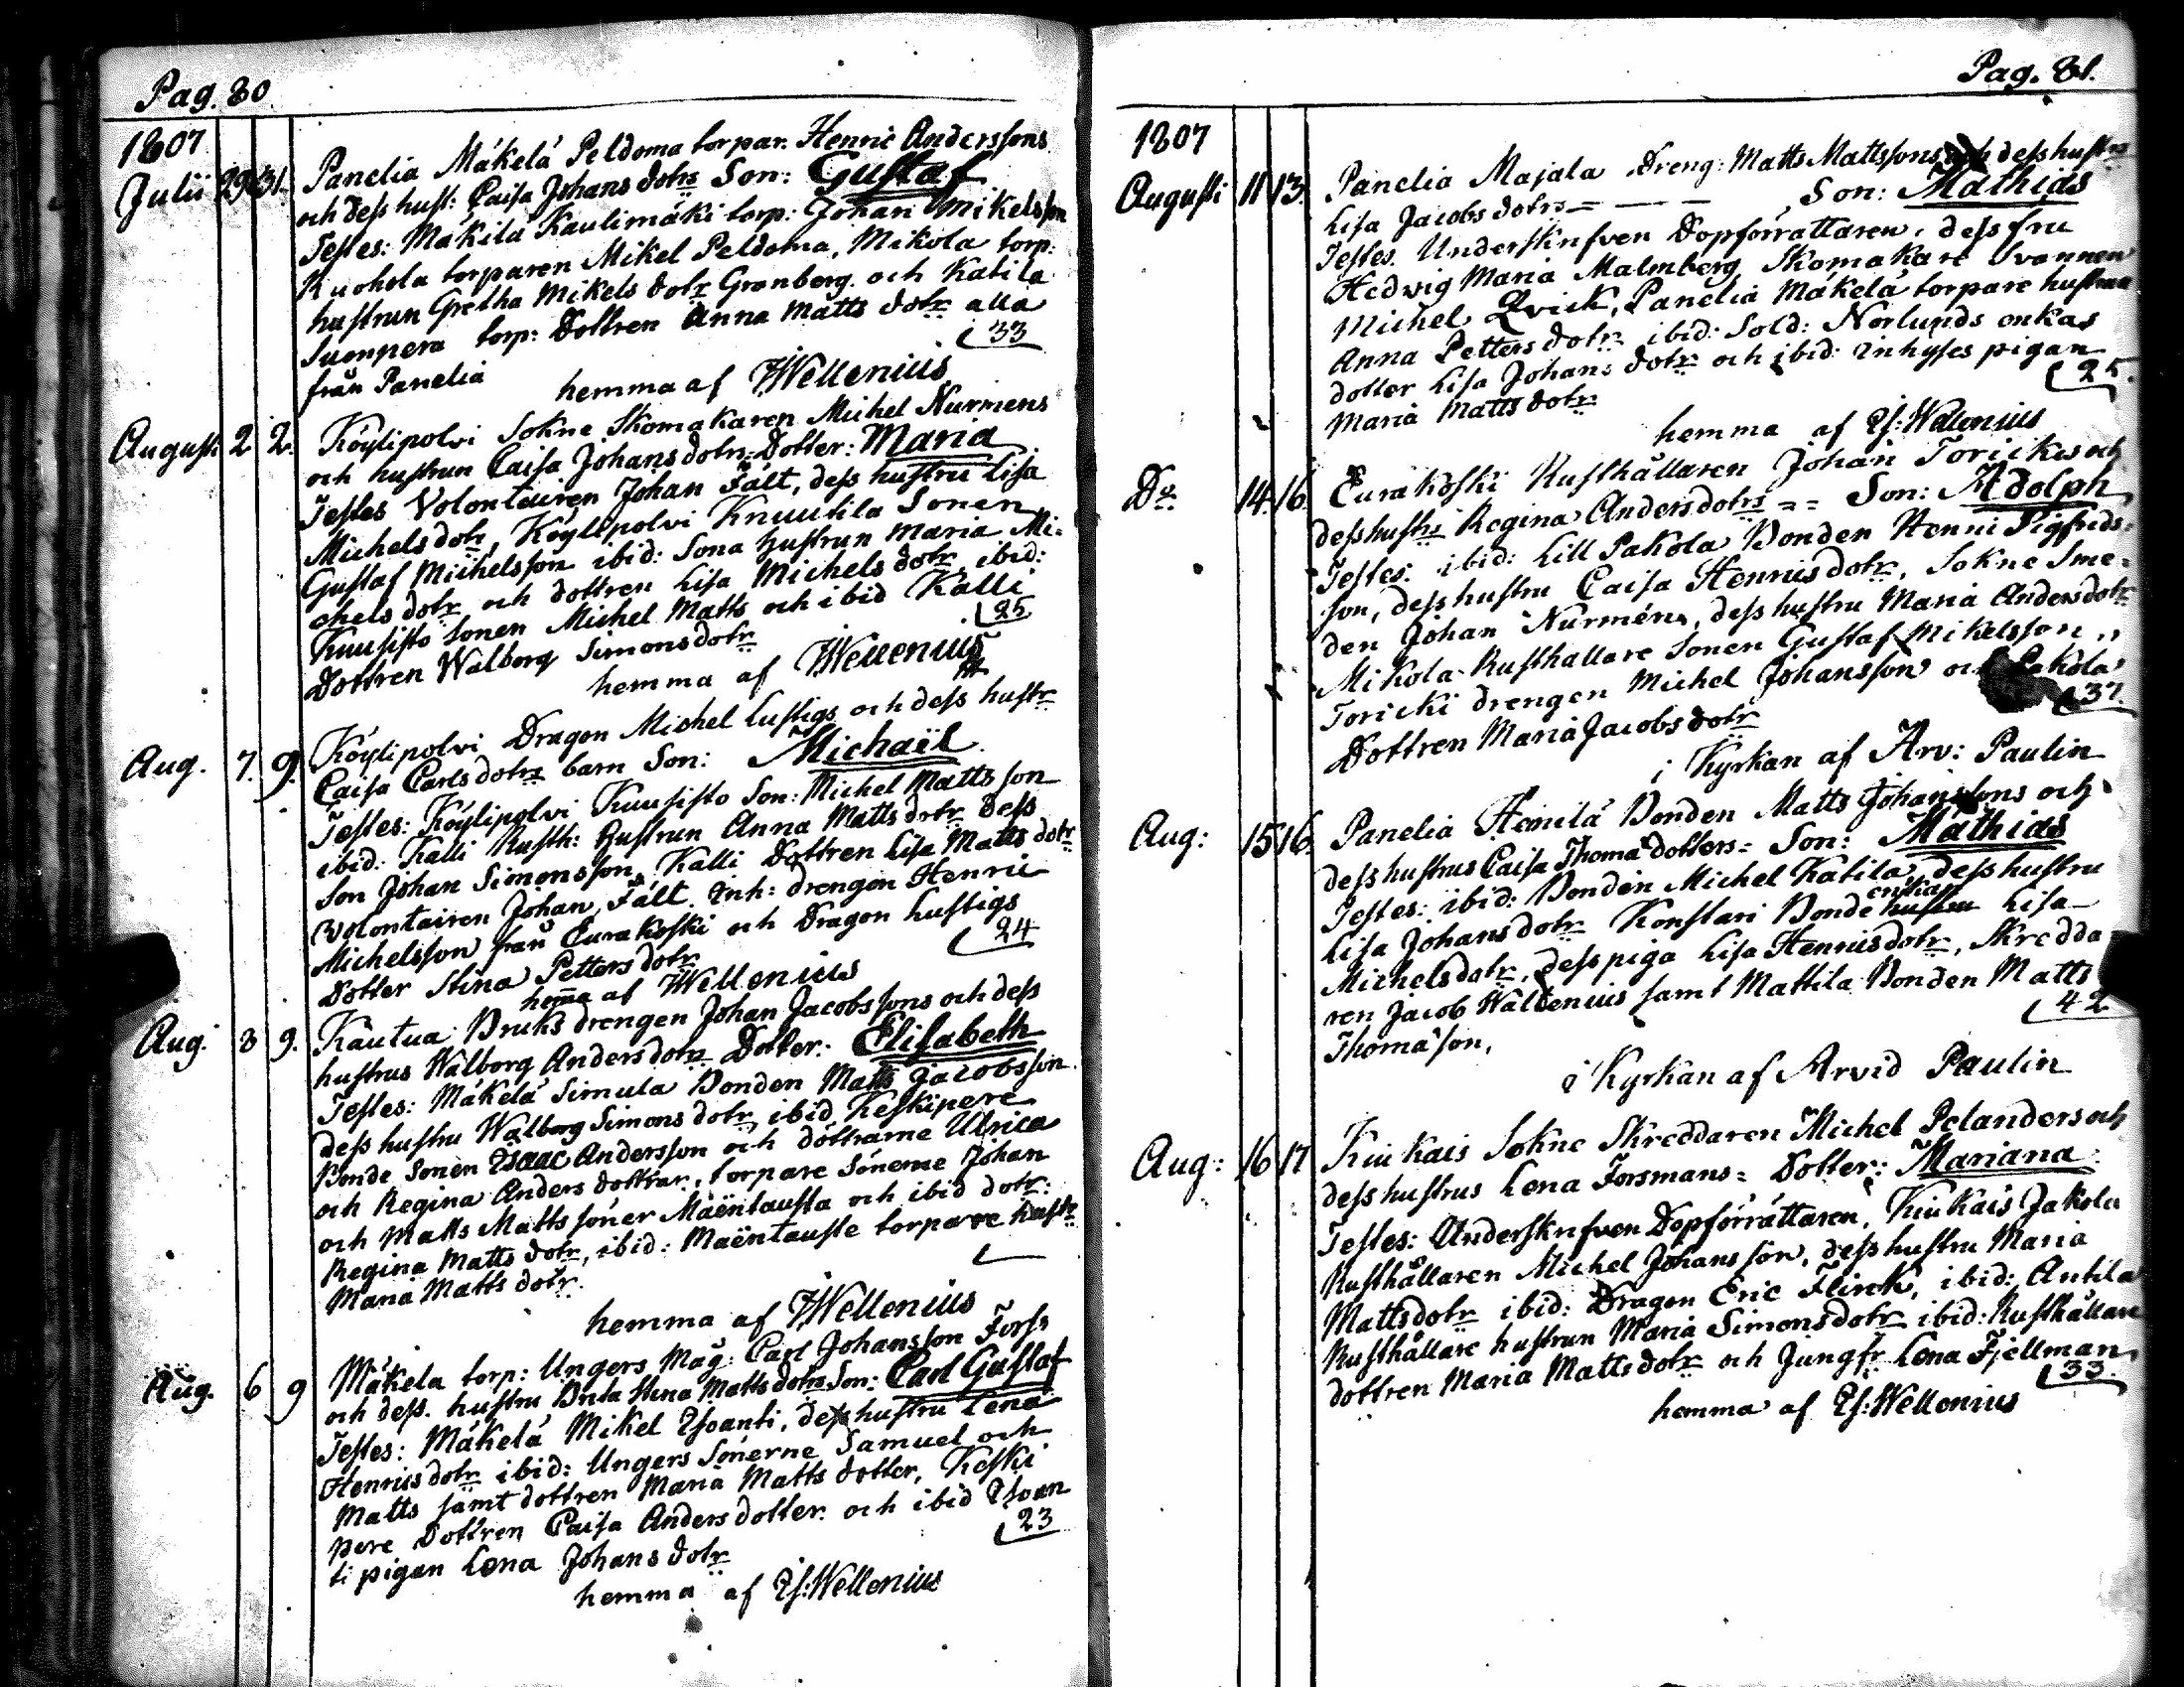 Pag. 80.
1807
Julii 29 31. Panelia Mäkelä Peldoma torpar. Henric Anderssons
och dess hust: Caisa Johans dotrs Son: Gustaf
Testes: Mäkilä Kaulimäki torp: Johan Mikelsson
Kuohola torparen Mikel Peldoma, Mikola torp:
hustrun Gretha Mikels dotr Granberg. och Katila
Suonpera torp: Dottren Anna Matts dotr alla
från Panelia 33
hemma af JWellenius
Augusti 2 2. Köylipolvi Sokne Skomakaren Michel Nurmens
och hustrun Caisa Johans dotrs Dotter: Maria
Testes Volontairen Johan Fält, dess hustru Lisa
Michels dotr, Köylipolvi Knuutila Sonen
Gustaf Michelsson ibid: Sona hustrun Maria Mi-
chels dotr och dottren Lisa Michels dotr, ibid:
Kuusisto Sonen Michel Matts och ibid Kalli
Dottren Walborg Simons dotr 25
hemma af JWellenius
Aug. 7. 9. Köylipolvi Dragon Michel Lustigs och dess hustr
Caisa Carls dotrs barn Son: Michaël
Testes: Köylipolvi Kuusisto Son: Michel Mattsson
ibid: Kalli Rusth: Hustrun Anna Matts dotr Dess
Son Johan Simonsson, Kalli Dottren Lisa Matts dotr
Volontairen Johan Fält. Inh: drengen Henric
Michelsson från Eurakoski och Dragon Lustigs
Dotter Stina Petters dotr 24
hema af JWellenius
Aug. 8 9. Kautua Bruks drengen Johan Jacobssons och dess
hustrus Walborg Anders dotrs Dotter: Elisabeth
Testes: Mäkelä Simula Bonden Matts Jacobsson
dess hustru Walborg Simons dotr, ibid Keskipere
Bonde Sonen Isaac Andersson och döttrarne Ulrica
och Regina Anders dottrar, torpare Sönerne Johan
och Matts Matts söner Mäentausta och ibid dotr:
Regina Matts dotr, ibid: Mäentauste torpare hustr
Maria Matts dotr.
hemma af JWellenius
Aug. 6 9 Mäkela torp: Ungers Måg: Carl Johansson Forss
och dess. hustru Brita Stina Matts dotrs Son: Carl Gustaf
Testes: Mäkelä Mikel Isoanti, dess hustru Lena
Henrics dotr ibid: Ungers Sönerne Samuel och
Matts samt dottren Maria Matts dotter, Keski
pere Dottren Caisa Anders dotter. och ibid Isoan
ti pigan Lena Johans dotr 23
hemma af Is: Wellenius
Pag. 81.
1807
Augusti 11 13. Panelia Majala Dreng: Matts Mattssons och dess hustrs
Lisa Jacobs dotrs Son: Mathias
Testes. Underskrifven Dopförrättaren, dess fru
Hedwig Maria Malmberg, Skomakare Svannen
Michel Qvick, Panelia Mäkelä torpare hustrun
Anna Petters dotr ibid: Sold: Norlunds enkas
dotter Lisa Johans dotr och ibid: Inhyses pigan
Maria Matts dotr 25.
hemma af Is: Wellenius
Do 14. 16. Eurakoski Rusthållaren Johan Torickis och
dess hustrs Regina Anders dotrs Son: Adolph
Testes: ibid: Lill Pakola Bonden Henric Sigfrids-
son, dess hustru Caisa Henrics dotr, Sokne Sme-
den Johan Nurmen, dess hustru Maria Anders dotr
Mikola Rusthållare Sonen Gustaf Mikelsson,
Toricki drengen Michel Johansson och Pakola
Dottren Maria Jacobs dotr 37.
i Kyrkan af Arv: Paulin
Aug: 15 16. Panelia Heinilä Bonden Matts Johanssons och
dess hustrus Caisa Thomæ dotters Son: Mathias
Testes: ibid: Bonden Michel Katila, dess hustru
Lisa Johans dotr Konstari Bonde enkan hustru Lisa
Michels dotr, dess piga Lisa Henrics dotr, Skredda
ren Jacob Wallenius samt Mattila Bonden Matts
Thomæson, 42
i Kyrkan af Arvid Paulin
Aug: 16 17 Kiukais Sokne Skreddaren Michel Pelanders och
dess hustrus Lena Forsmans Dotter: Mariana
Testes: Underskrifven Dopförrättaren, Kiukais Jakola
Rusthållaren Michel Johansson, dess hustru Maria
Matts dotr ibid: Dragon Eric Flinck, ibid: Antila
Rusthållare hustrun Maria Simons dotr ibid: Rusthållare
dottren Maria Matts dotr och Jungfr Lena Fjellman
33.
hemma af Is: Wellenius